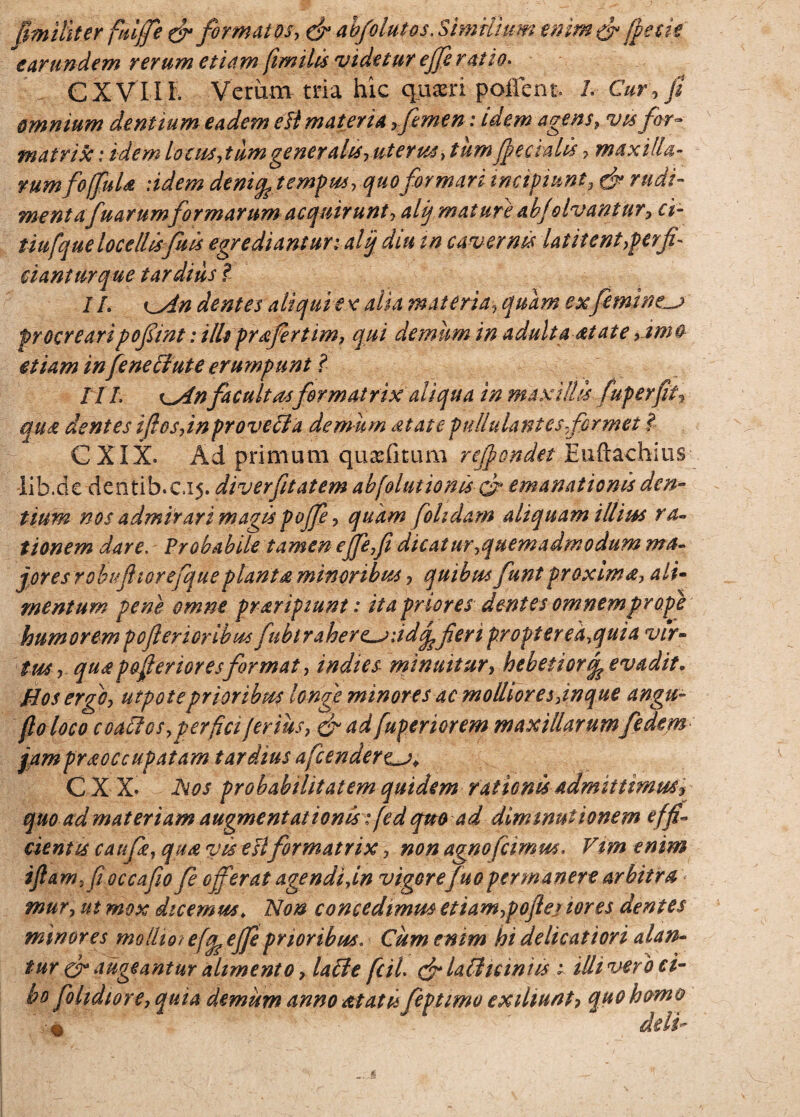 ſimiliter fuiſſe & formatos, & abſolutos. Similium enim & ſpecie
earundem rerum etiam ſimilis videtur eſſe ratio.
CXVIII. Verùm tria hîc quæri poſſent. I. Cur, ſi
omnium dentium eadem eſt materia, ſemen: idem agens, vis for-
matrix: idem locus, tùm generalis, uterus, tùm ſpecialis, maxilla-
rum foſſula: idem deniq̃ tempus, quo formari incipiunt, & rudi-
menta ſuarum formarum acquirunt, alij maturè abſolvantur, ci-
tiuſque locellis ſuis egrediantur: alij diu in cavernis latitent, perfi-
cianturque tardiùs?
II. An dentes aliqui ex alia materia, quàm ex ſemine
procreari poßint: illi præſertim, qui demùm in adulta ætate, imo
etiam in ſenectute erumpunt?
III. An facultas formatrix aliqua in maxillis ſuperſit,
quæ dentes iſtos, in provecta demùm ætate pullulantes, formet?
CXIX. Ad primum quæſitum reſpondet Euſtachius
lib. de dentib. c. 15. diverſitatem abſolutionis & emanationis den-
tium nos admirari magis poſſe, quàm ſolidam aliquam illius ra-
tionem dare. Probabile tamen eſſe, ſi dicatur, quemadmodum ma-
jores robuſtioreſque plantæ minoribus, quibus ſunt proximæ, ali-
mentum penè omne præripiunt: ita priores dentes omnem propè
humorem poſterioribus ſubtrahere: idq̃ fieri propterea, quia vir-
tus, quæ poſteriores format, indies minuitur, hebetiorq̃ evadit.
Hos ergò, utpote prioribus longè minores ac molliores, inque angu-
ſto loco coactos, perfici ſeriùs, & ad ſuperiorem maxillarum ſedem
jam præoccupatam tardiùs aſcendere.
CXX. Nos probabilitatem quidem rationis admittimus,
quo ad materiam augmentationis: ſed quo ad diminutionem effi-
cientis cauſæ, quæ vis eſt formatrix, non agnoſcimus. Vim enim
iſtam, ſi occaſio ſe offerat agendi, in vigore ſuo permanere arbitra
mur, ut mox dicemus. Non concedimus etiam, poſteriores dentes
minores mollioreſq̃ eſſe prioribus. Cùm enim hi delicatiori alan-
tur & augeantur alimento, lacte ſcil. & lacticiniis: illi verò ci-
bo ſolidiore, quia demùm anno ætatis ſeptimo exiliunt, quo homo
deli-